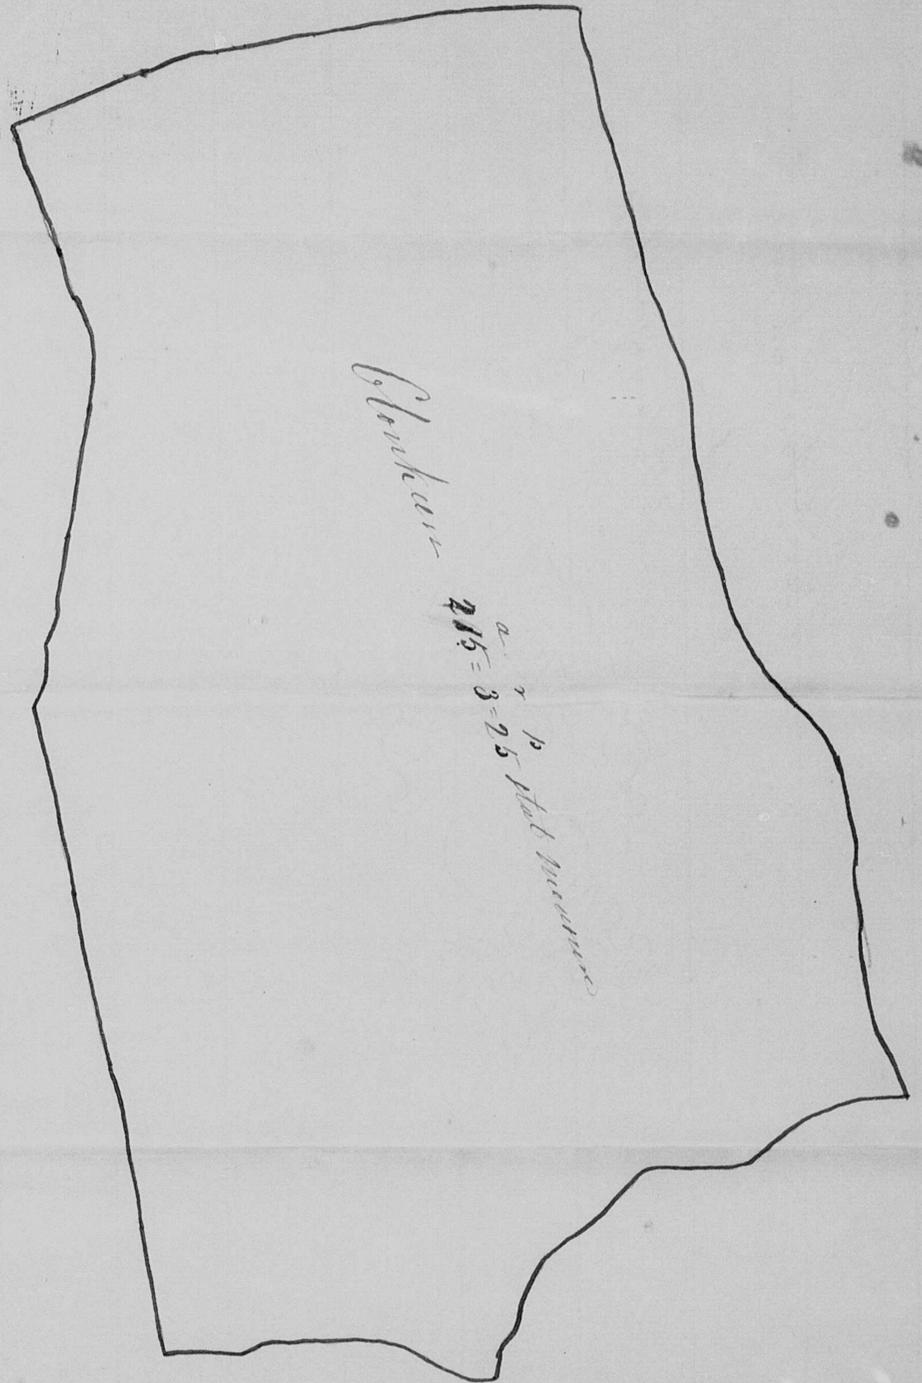 Clonkeen
a r p
215 = 3 = 25 stat measure